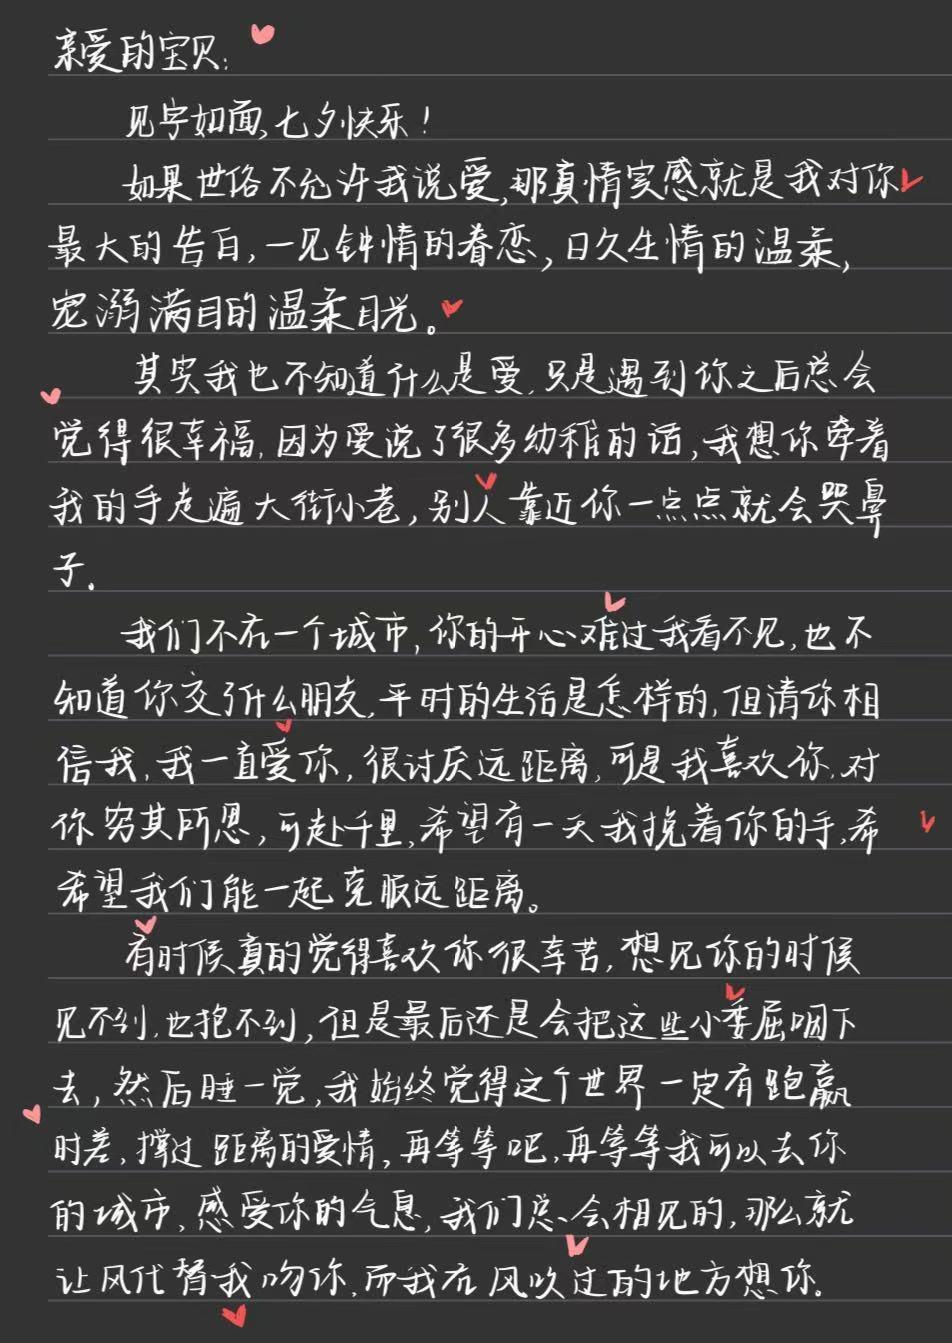 亲爱的宝贝:
见字如面,七夕快乐!
如果世俗不允许我说爱,那真情实感就是我对你
最大的告白,一见钟情的眷恋,日久生情的温柔,
宠溺满目的温柔目光。
其实我也不知道什么是爱,只是遇到你之后总会
觉得很幸福,因为爱说了很多幼稚的话,我想你牵着
我的手走遍大街小巷,别人靠近你一点点就会哭鼻
子.
我们不在一个城市,你的开心难过我看不见,也不
知道你交了什么朋友,平时的生活是怎样的,但请你相
信我,我一直爱你,很讨厌远距离,可是我喜欢你,对
你穷其所思,可赴千里,希望有一天我挽着你的手,希
希望我们能一起克服远距离。
有时候真的觉得喜欢你很辛苦,想见你的时候
见不到,也抱不到,但是最后还是会把这些小委屈咽下
去,然后睡一觉,我始终觉得这个世界一定有跑赢
时差,撑过距离的爱情,再等等吧,再等等我可以去你
的城市,感受你的气息,我们总会相见的,那么就
让风代替我吻你,而我在风吹过的地方想你。